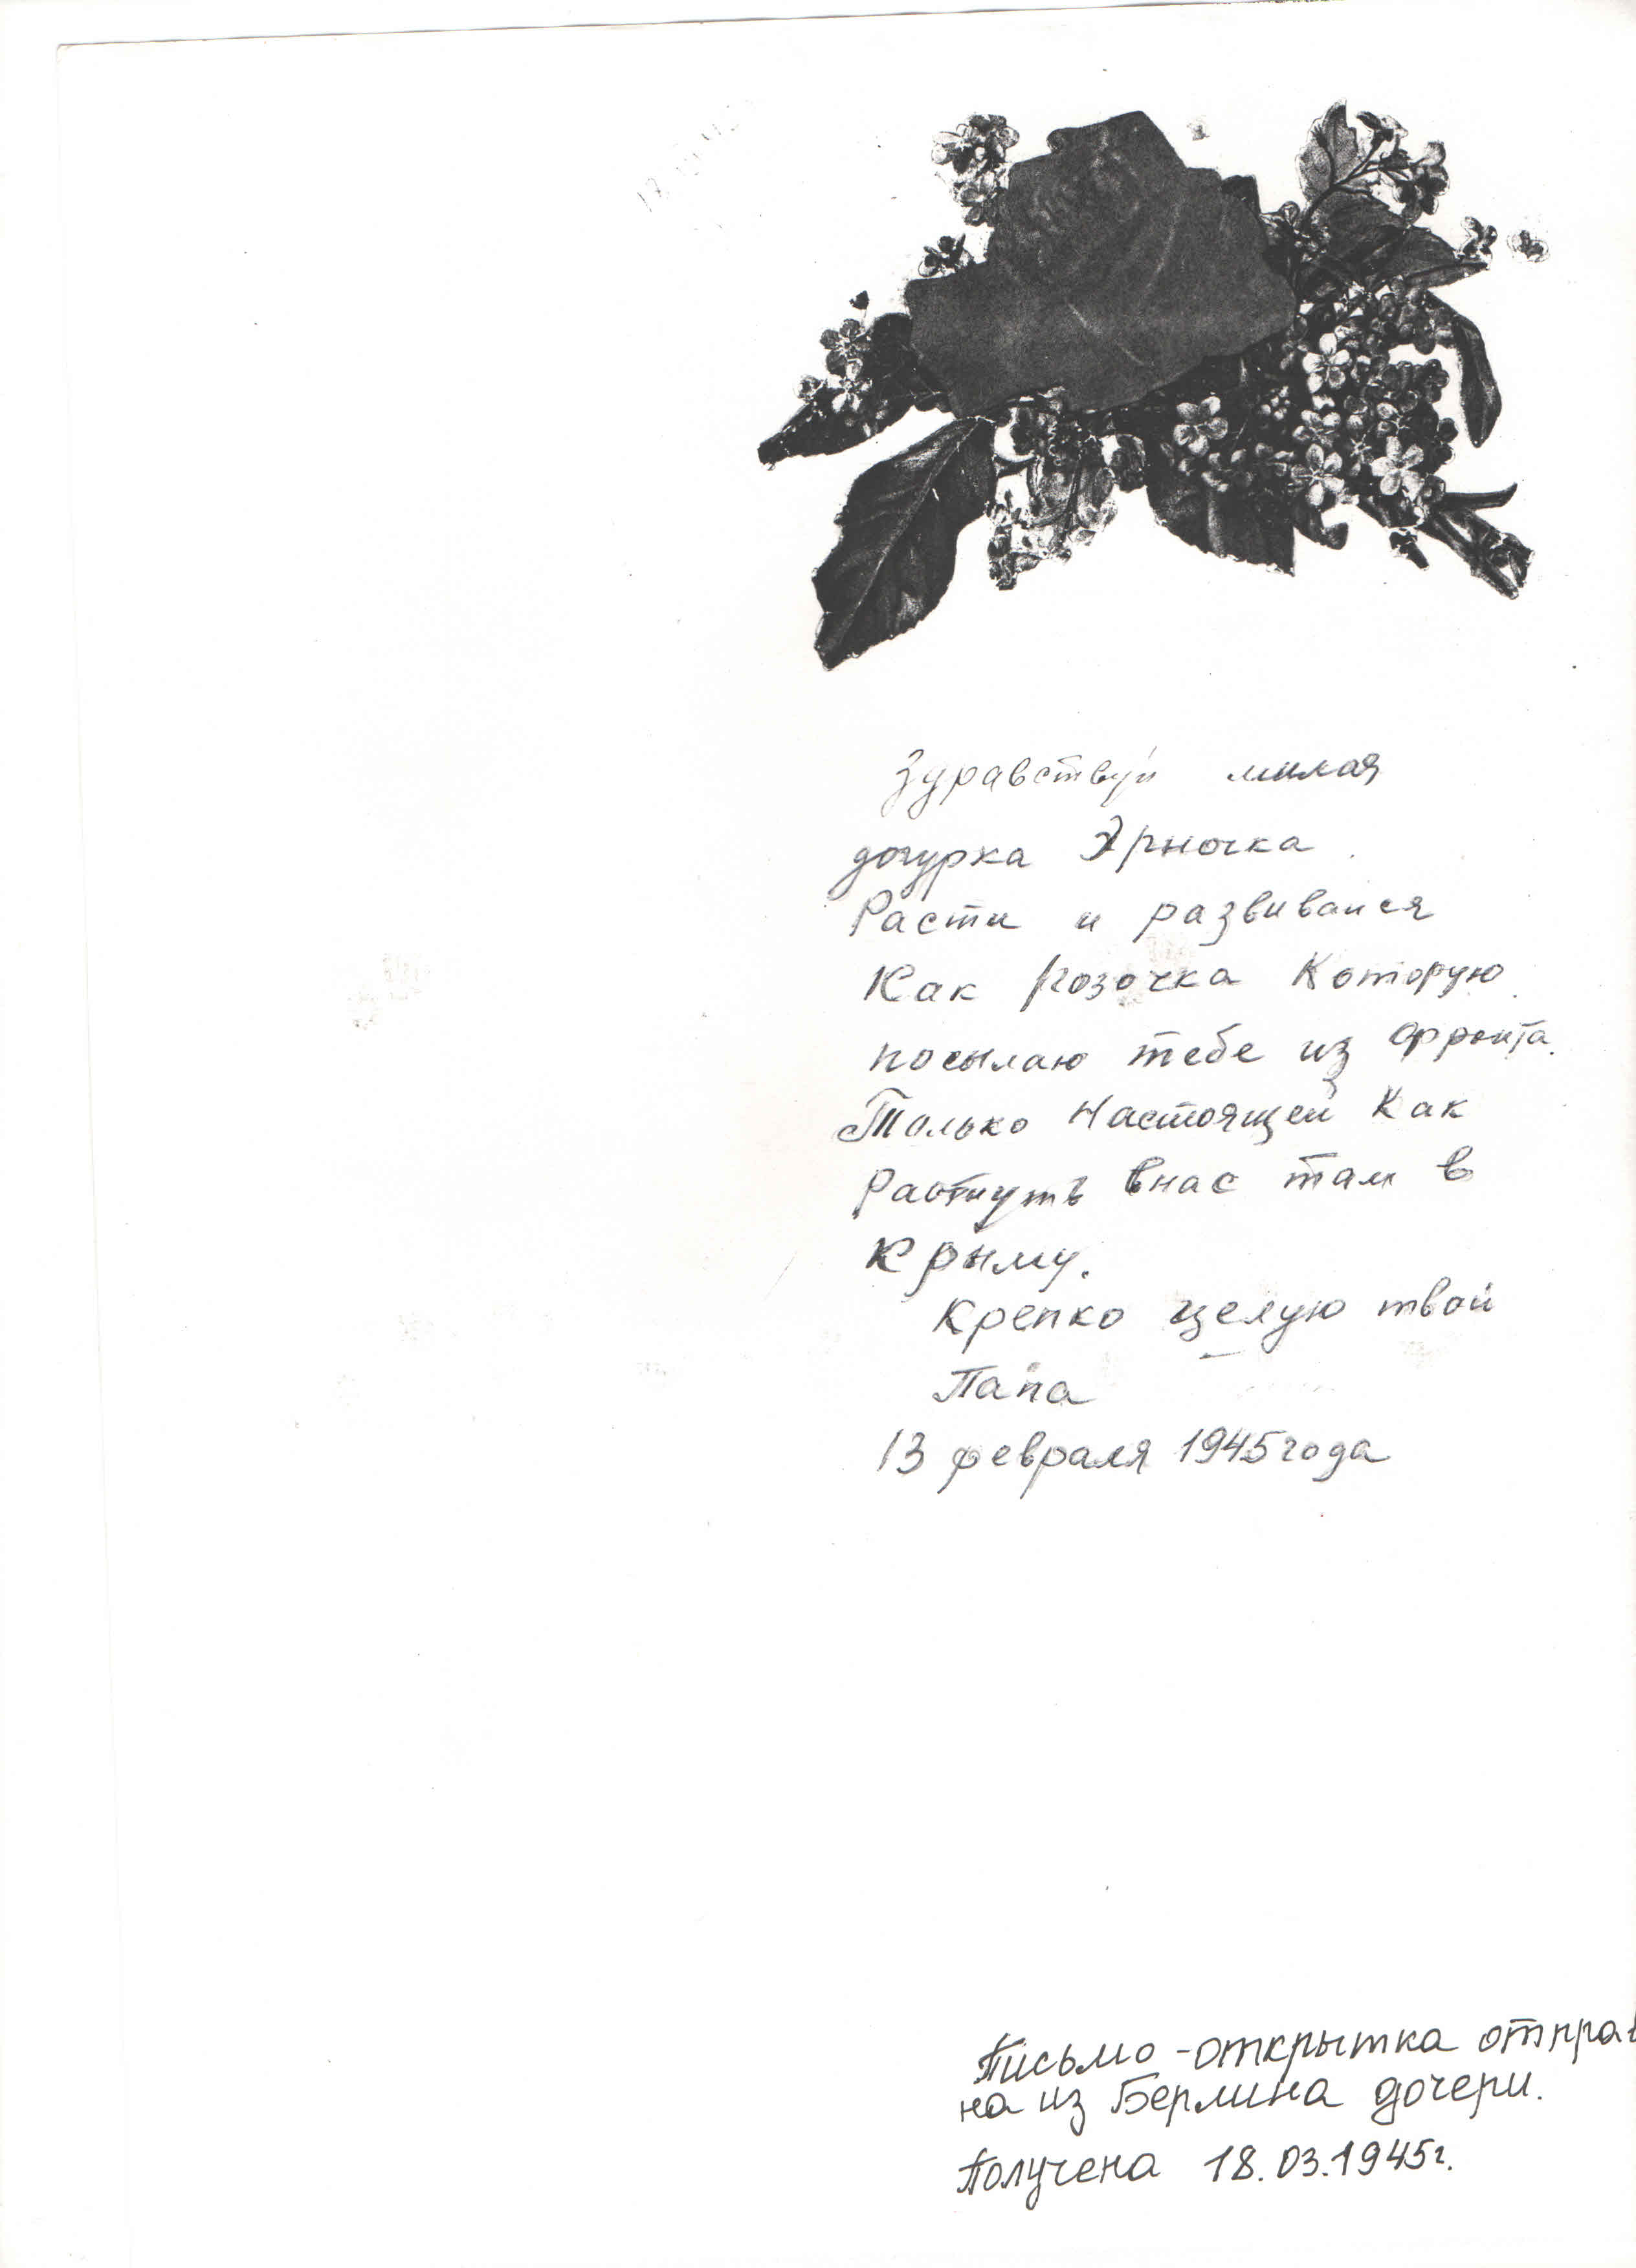 Здравствуй милая
дочурка Эрночка.
Расти и развивайся
Как розочка Которую
посылаю тебе из фронта.
Только Настоящей Как
Растуть внас там в
Крыму.
Крепко целую твой
Папа
13 февраля 1945 года
Письмо-открытка отправ
на из Берлина дочери.
Получена 18.03.1945г.